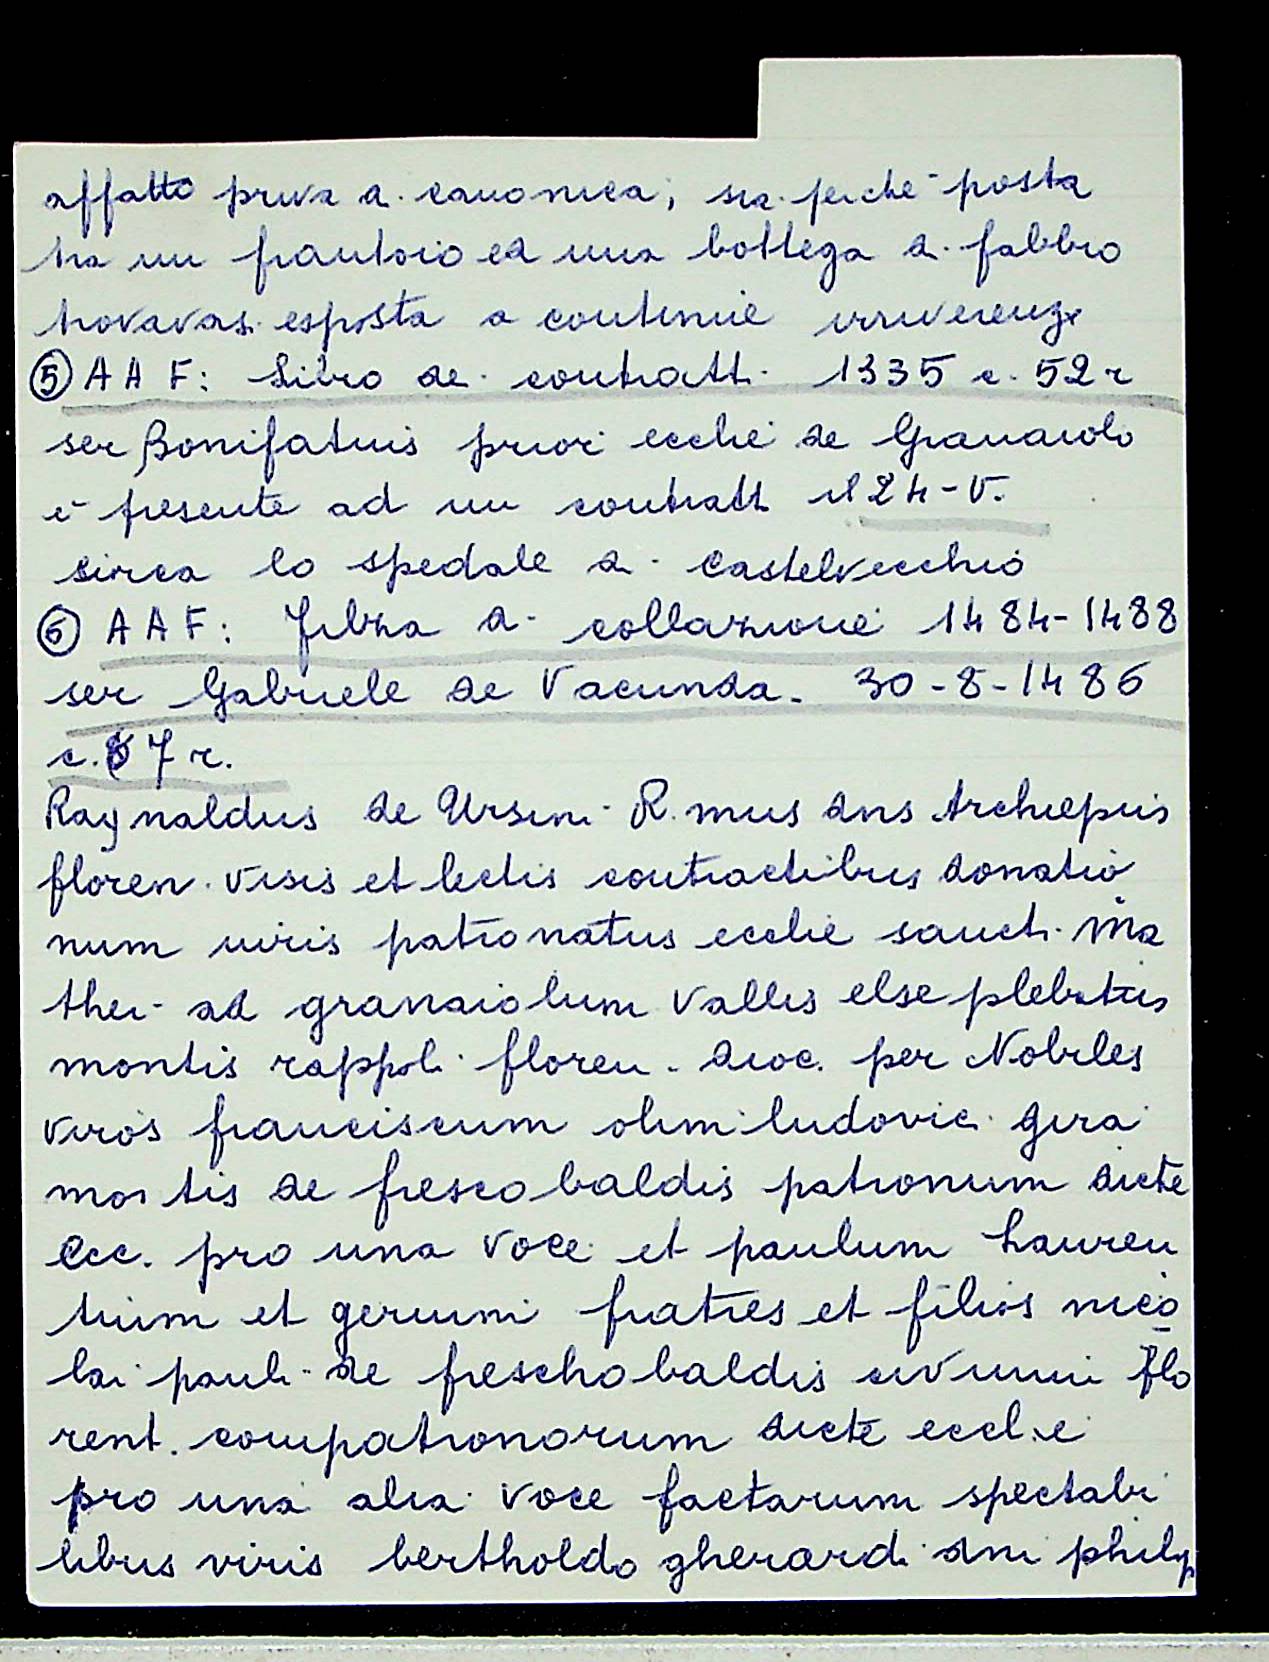 affatto priva di canonica; sia perchè posta
tra un frantoio ed una bottega di fabbro
trovavasi esposta a continue irriverenze
⑤ A A F: Libro dei contratti 1335 c. 52 r
ser Bonifatius priori ecclie de Granaiolo
è presente ad un contratt il 24-V.
circa lo spedale di Castelvecchio
⑥ A A F: Filza di collazioni 1484-1488
ser Gabriele de Vacunda. 30-8-1486
c. 7 r.
Raynaldus de Ursini R.mus dns Archiepus
floren. visis et lectis contractibus donatio
num iuris patronatus ecclie sancti Ma
thei ad granaiolum Vallis else plebatus
montis rappoli floren. dioc. per Nobiles
viros franciscum olim ludovici gira
mortis de frescobaldis patronum dicte
Ecc. pro una voce et paulum Lauren
tium et gerium fratres et filios nico
lai pauli de freschobaldis civium flo
rent. compatronorum dicte ecclie
pro una alia voce factarum spectabi
libus viris bertholdo gherardi dni philip